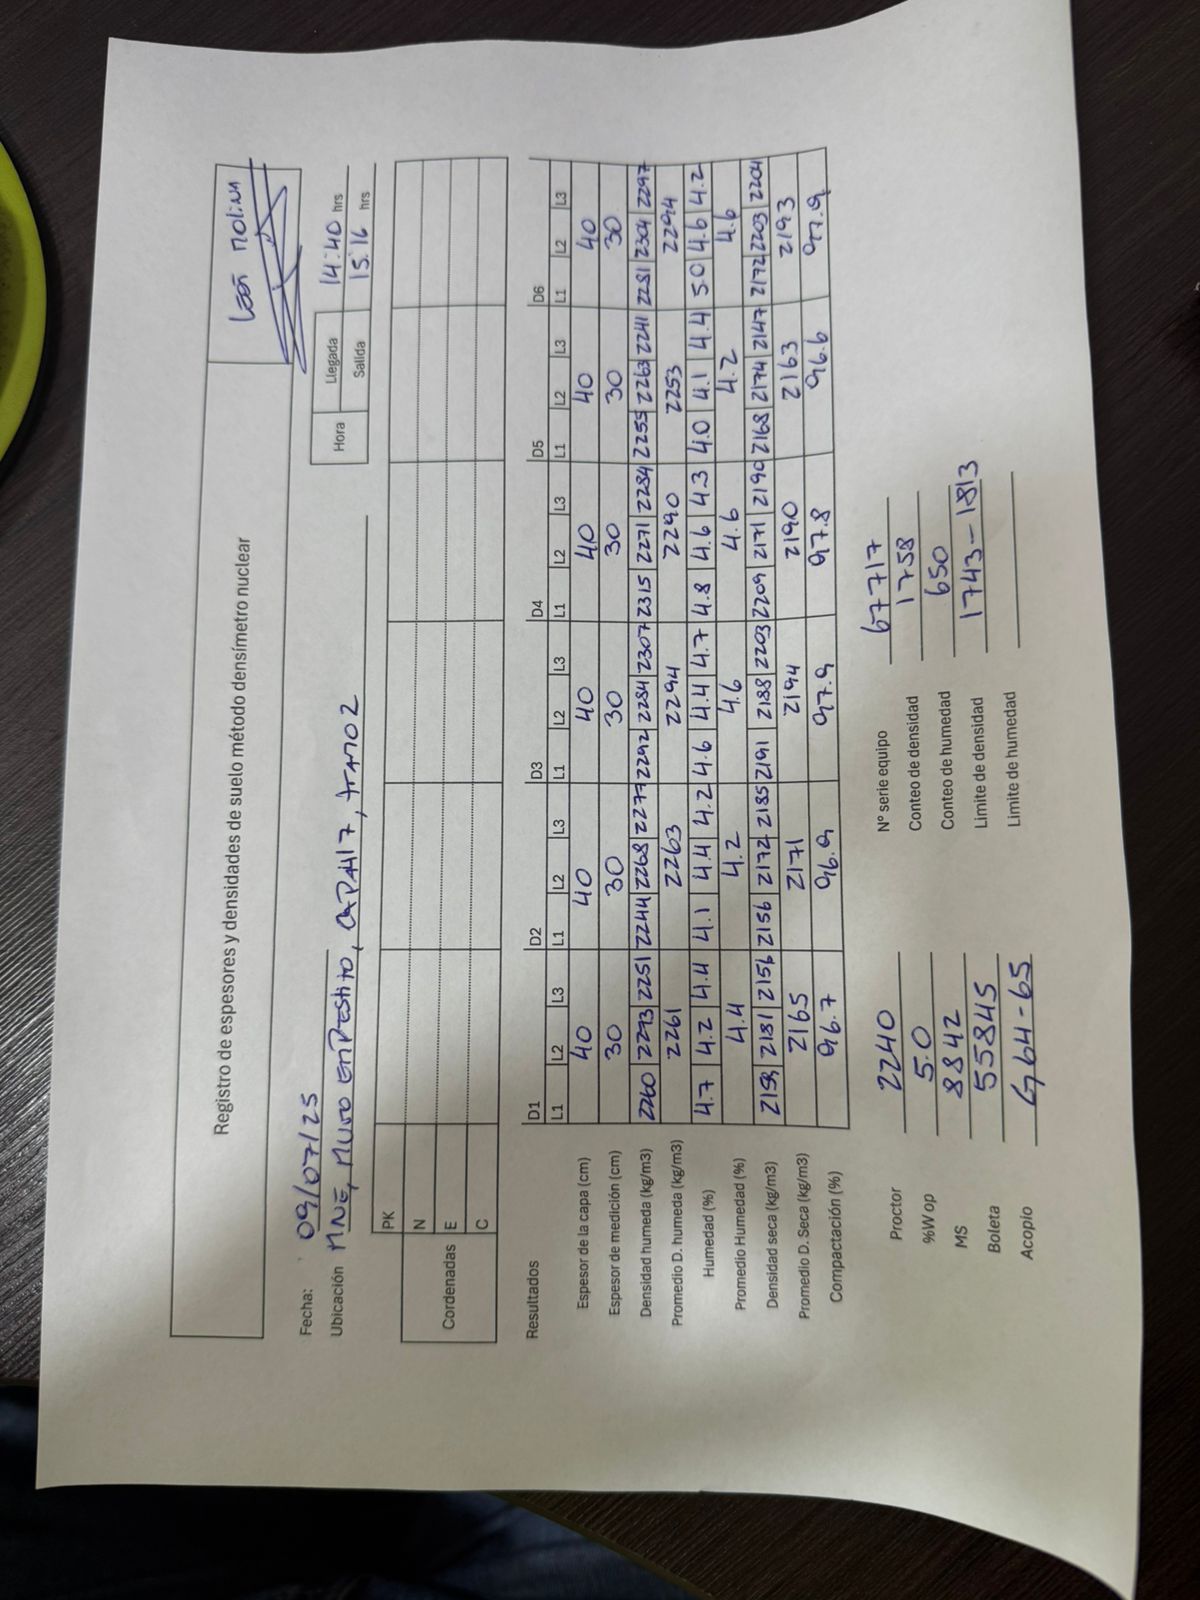 León Molina
Registro de espesores y densidades de suelo método densímetro nuclear
Fecha: 09/07/25
Hora Llegada 14:40 hrs
Salida 15:16 hrs
Ubicación MNE, MURO EMPRESTITO, CAPA 17, TRAMO 2
PK
Cordenadas N
E
C
Resultados D1 D2 D3 D4 D5 D6
L1 L2 L3 L1 L2 L3 L1 L2 L3 L1 L2 L3 L1 L2 L3 L1 L2 L3
Espesor de la capa (cm) 40 40 40 40 40 40
Espesor de medición (cm) 30 30 30 30 30 30
Densidad humeda (kg/m3) 2260 2273 2251 2244 2268 2277 2292 2284 2307 2315 2271 2284 2255 2263 2241 2281 2304 2297
Promedio D. humeda (kg/m3) 2261 2263 2294 2290 2253 2294
Humedad (%) 4.7 4.2 4.4 4.1 4.4 4.2 4.6 4.4 4.7 4.8 4.6 4.3 4.0 4.1 4.4 5.0 4.6 4.2
Promedio Humedad (%) 4.4 4.2 4.6 4.6 4.2 4.6
Densidad seca (kg/m3) 2159 2181 2156 2156 2172 2185 2191 2188 2203 2209 2171 2190 2168 2174 2147 2172 2203 2204
Promedio D. Seca (kg/m3) 2165 2171 2194 2190 2163 2193
Compactación (%) 96.7 96.9 97.9 97.8 96.6 97.9
Proctor 2240
%W op 5.0
MS 8842
Boleta 55845
Acopio G,64-65
N° serie equipo 67717
Conteo de densidad 1758
Conteo de humedad 650
Limite de densidad 1743-1813
Limite de humedad